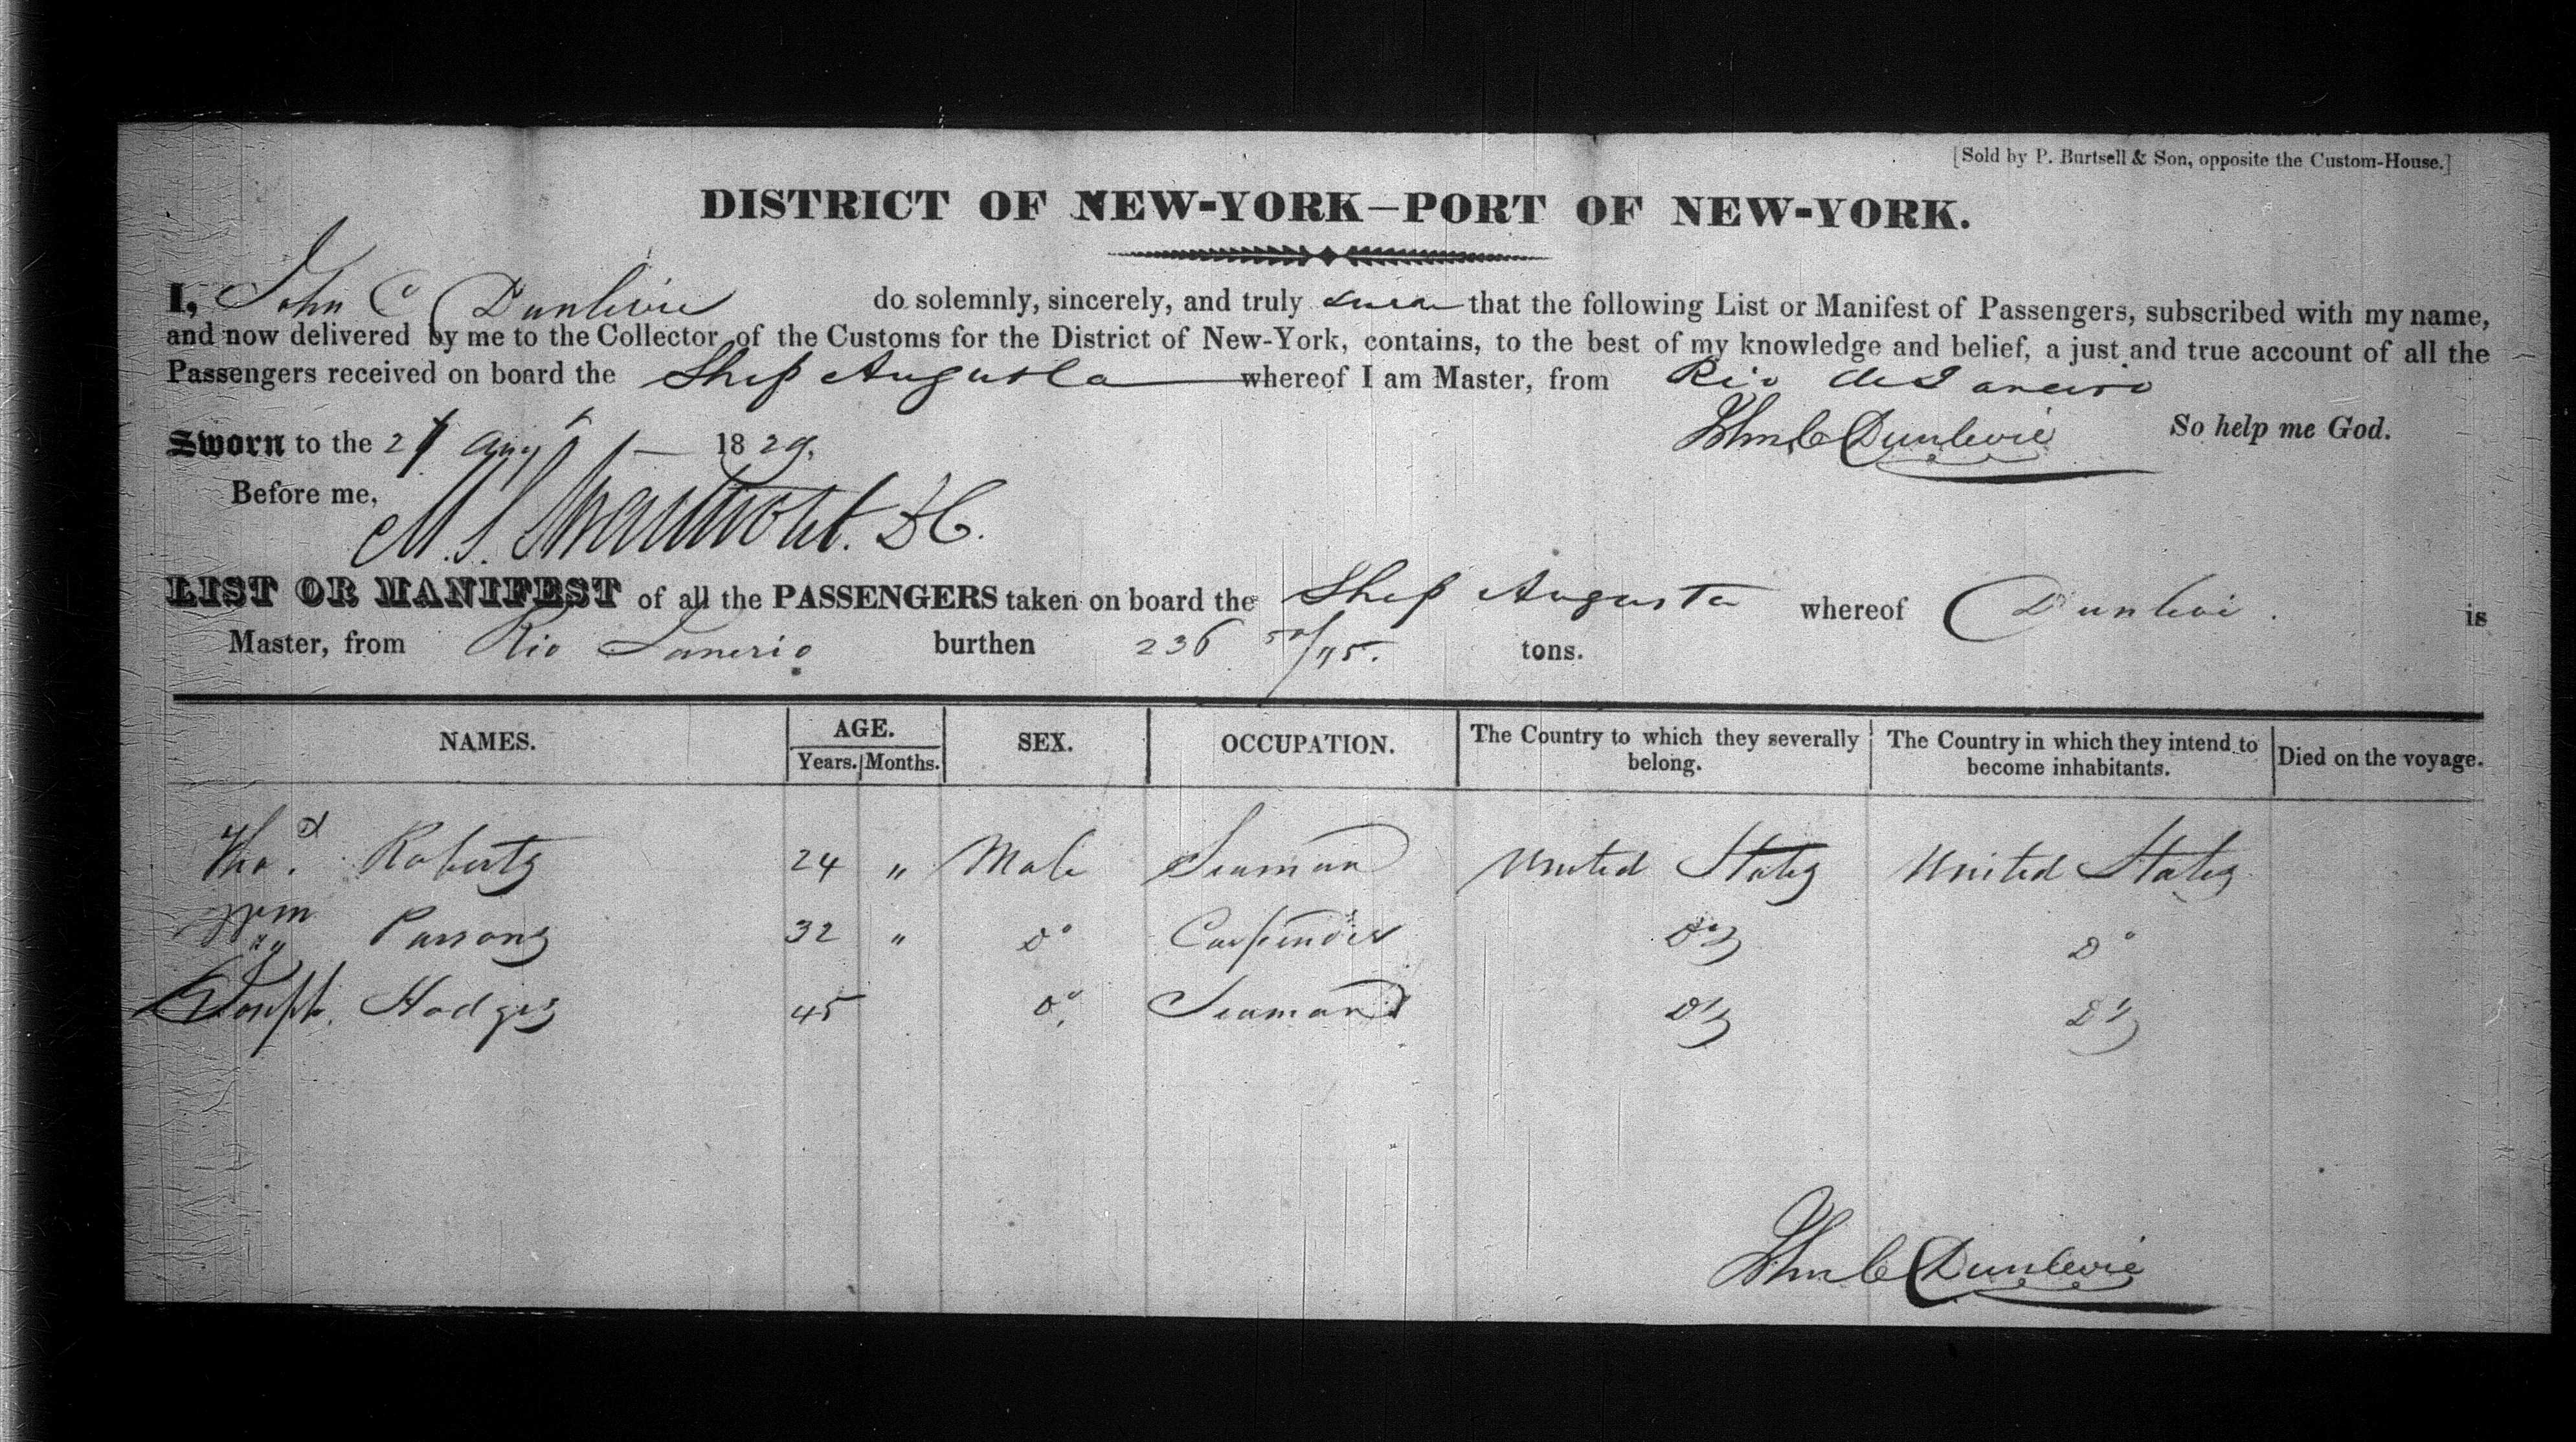 [Sold by P. Burtsell & Son, opposite the Custom-House.]
DISTRICT OF NEW-YORK—PORT OF NEW-YORK.
I, John C Dunlevie do solemnly, sincerely, and truly that the following List or Manifest of Passengers, subscribed with my name,
and now delivered by me to the Collector of the Customs for the District of New-York, contains, to the best of my knowledge and belief, a just and true account of all the
Passengers received on board the Ship Augusta whereof I am Master, from Rio de Janeiro
John C Dunlevie So help me God.
Sworn to the Aug 1829,
Before me,
M. S. Swartwout. DC.
LIST OR MANIFEST of all the PASSENGERS taken on board the Ship Augusta whereof Dunlevi. is
Master, from Rio Janerio burthen 236 tons.
NAMES. AGE. Years. Months. SEX. OCCUPATION. The Country to which they severally belong. The Country in which they intend to become inhabitants. Died on the voyage.
Roberts 24 " Male Seaman United States United States
Wm Parsons 32 " Do Carpinder Do Do
Joseph. Hodges 45 Do Seaman Do Do
John C Dunlevie